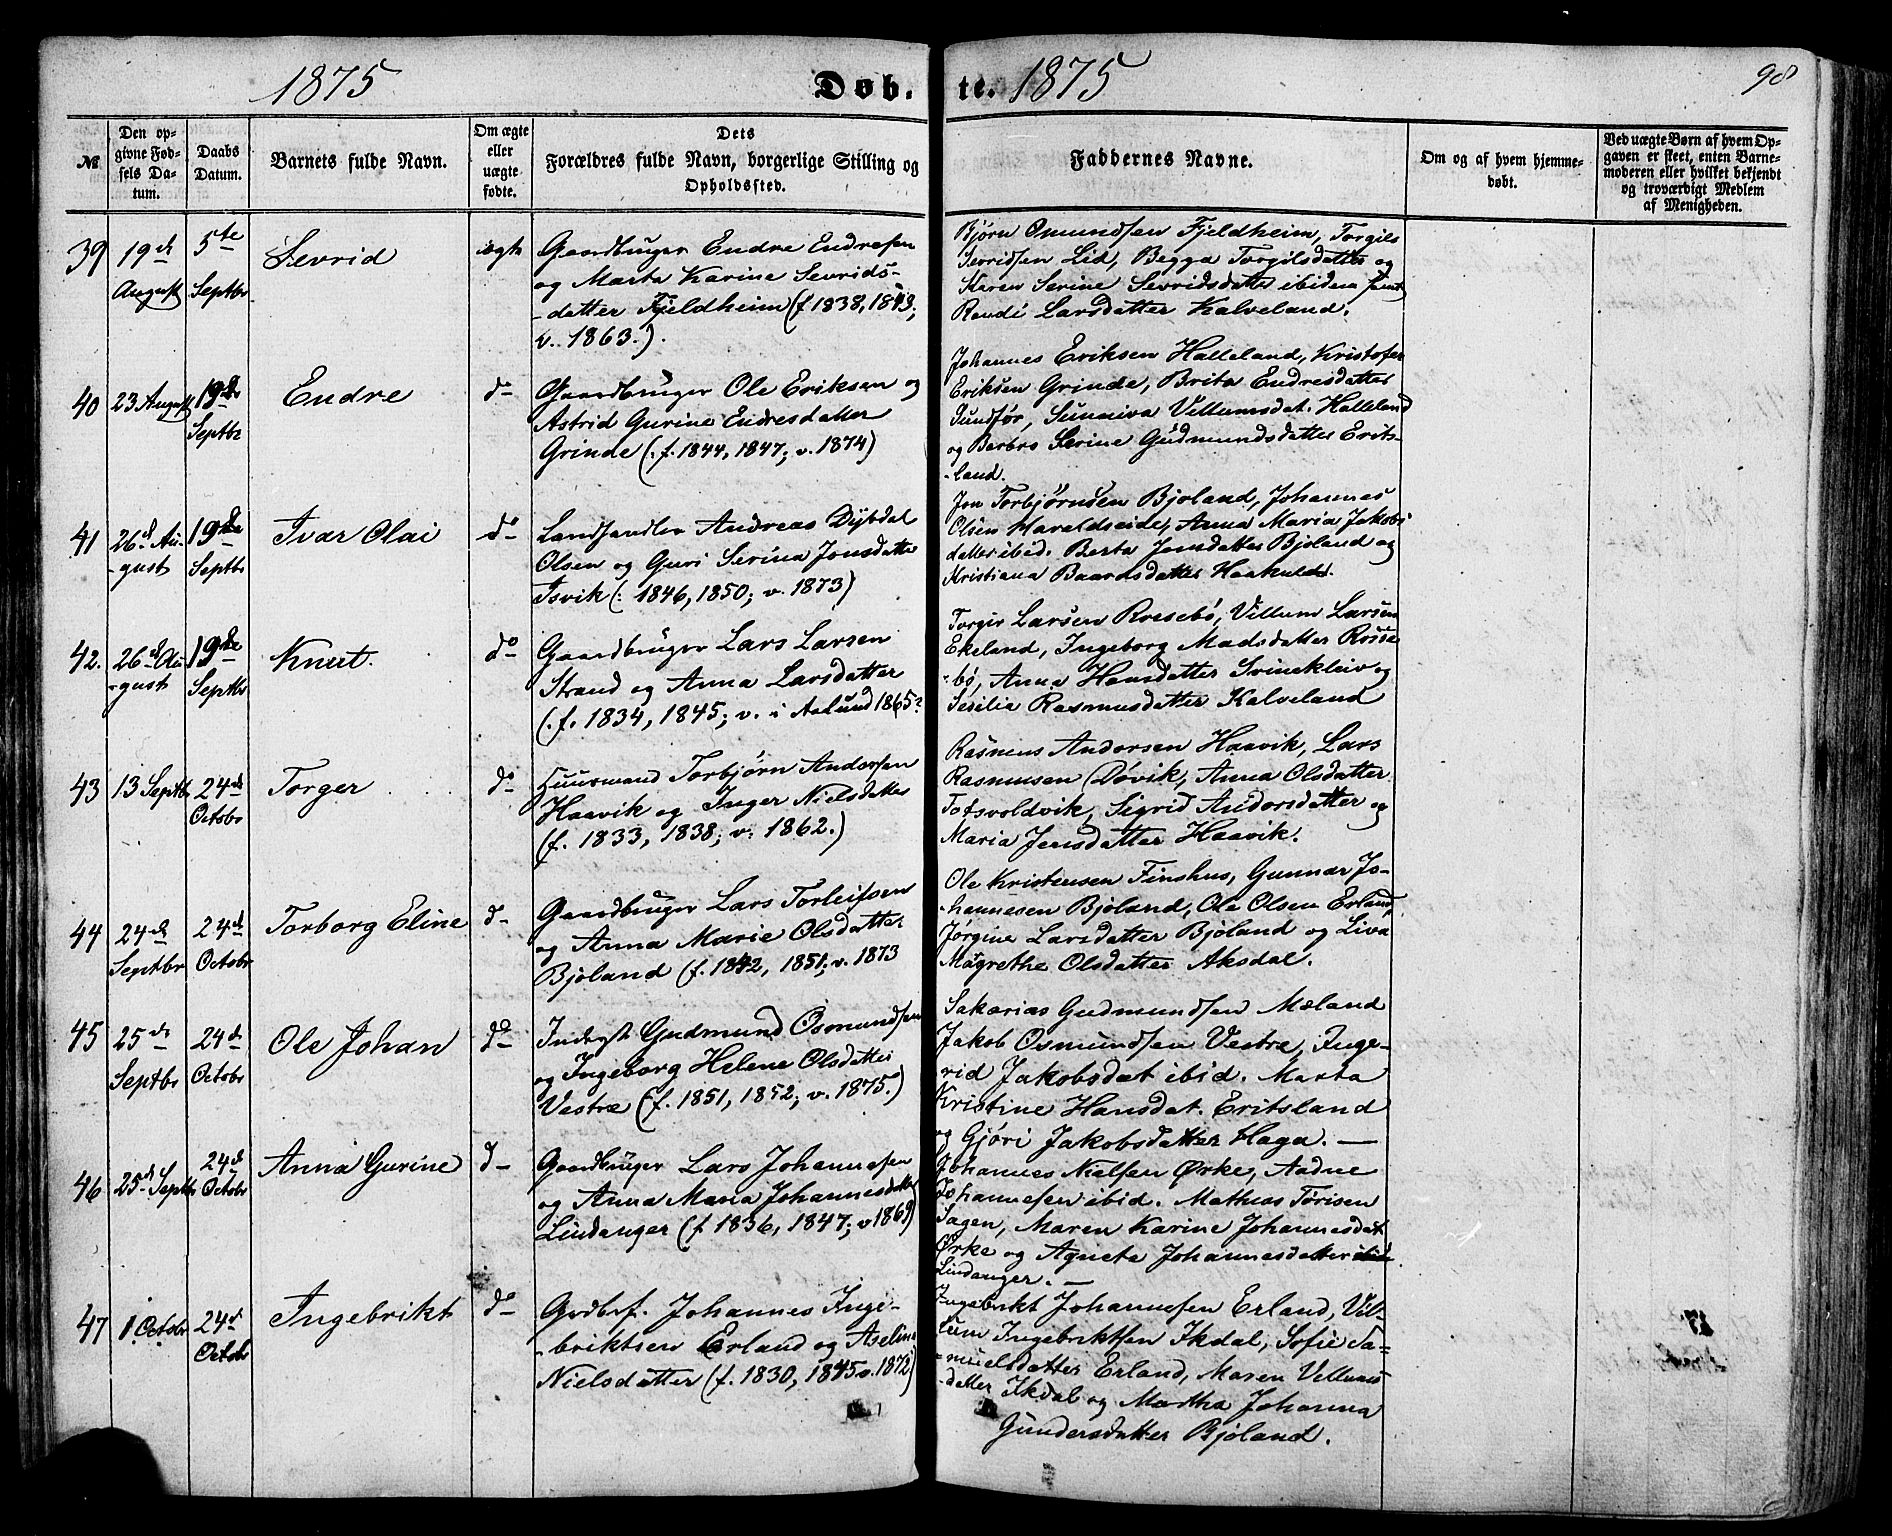 1875 Døb. te. 1875 98
№
Den op-
givne Fød-
sels Da-
tum.
Daabs
Datum.
Barnets fulde Navn.
Om ægte
eller
uægte
fødte.
Dets
Forældres fulde Navn, borgerlige Stilling og
Opholdssted.
Faddernes Navne.
Om og af hvem hjemme-
døbt.
Ved uægte Børn af hvem Op-
gaven er skeet, enten Barne-
moderen eller hvilket bekjendt
og troværdigt Medlem
af Menigheden.
39
19de
August
5te
Septbr
Sevrid
ægte
Gaardbruger Endre Endresen
og Marta Karine Sevrids-
-datter Fjeldheim (f 1838, 1843;
v. 1863.).
Bjørn Omundsen Fjeldheim, Torgils
Sevridsen Lid, Begga Torgilsdatter og
Karen Serine Sevridsdatter ibidem samt
Randi Larsdatter Kalveland.
40
23 August
19de
Septbr
Endre
do
Gaardbruger Ole Eriksen og
Astrid Gurine Endresdatter
Grinde (: f. 1844, 1847; v. 1874)
Johannes Eriksen Halleland, Kristofer
Eriksen Grinde, Brita Endresdatter
Sundfør, Sunniva Villumsdat. Halleland
og Berbro Serine Gudmundsdatter Erits-
-land.
41
26de Au-
-gust
19de
Septbr
Ivar Olai
do
Landhandler Andreas Dybdal
Olsen og Guri Serina Jonsdatter
Isvik (: 1846, 1850; v. 1873)
Jon Torbjørnsen Bjoland, Johannes
Olsen Haraldseide, Anna Maria Jakobs
datter ibid. Berta Jensdatter Bjoland og
Kristiana Baardsdatter Haakuld.
42.
26de Au-
-gust
19de
Septbr
Knut.
do
Gaardbruger Lars Larsen
Strand og Anna Larsdatter
(: f. 1834, 1845; v. i Aalund 1865
Torgir Larsen Rossebø, Villum Larsen
Ekeland, Ingeborg Madsdatter Rosse
-bø, Anna Hansdatter Svinekleiv og
Sesilia Rasmusdatter Kalveland
43
13 Septbr
24de
Octobr
Torger
do
Huusmand Torbjørn Andorsen
Haavik og Inger Nielsdatter
(f. 1833, 1838; v. 1862.)
Rasmus Andorsen Haavik, Lars
Rasmusen Døvik, Anna Olsdatter
Totsvoldvik, Sigrid Andorsdatter og
Maria Jensdatter Haavik.
44
24de
Septbr
24de
Octobr
Torborg Eline
d-
Gaardbruger Lars Torleifsen
og Anna Marie Olsdatter
Bjoland (f. 1842, 1851; v. 1873
Ole Kristensen Finshus, Gunnar Jo-
-hannesen Bjoland, Ole Olsen Erland,
Jørgine Larsdatter Bjoland og Liva
Magrethe Olsdatter Aksdal.
45
25de
Septbr
24de
Octobr
Ole Johan
do
Inderst Gudmund Osmundsen
og Ingeborg Helene Olsdatter
Vestre (f. 1851, 1852; v. 1875.)
Sakarias Gudmundsen Mæland
Jakob Osmundsen Vestre, Inge-
rid Jakobsdat ibid. Marta
Kristine Hansdat. Eritsland
og Gjøri Jakobsdatter Haga. —
46
25de Septbr
24de
Octobr
Anna Gurine
d-
Gaardbruger Lars Johannesen
og Anna Maria Johannesdatter
Lindanger (f 1836, 1847; v 1869)
Johannes Nielsen Ørke, Aadne
Johannesen ibid. Mathias Tørisen
Sagen, Maren Karine Johannesdat
Ørke og Agneta Johannesdatter
Lindanger. —
47
1 Octobr
24de
Octobr
Ingebrikt
do
Grdbr. Johannes Inge-
-briktsen Erland og Aselina
Nielsdatter (f. 1830, 1845 v. 1872)
Ingebrikt Johannesen Erland, Vil-
lum Ingebriktsen Ikdal, Sofie Sa-
-muelsdatter Erland, Maren Villums
-datter Ikdal og Martha Johanna
Gundersdatter Bjoland.